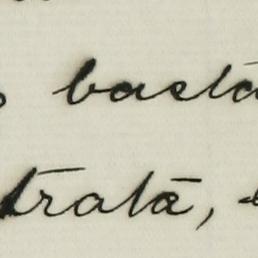 basta
trata,